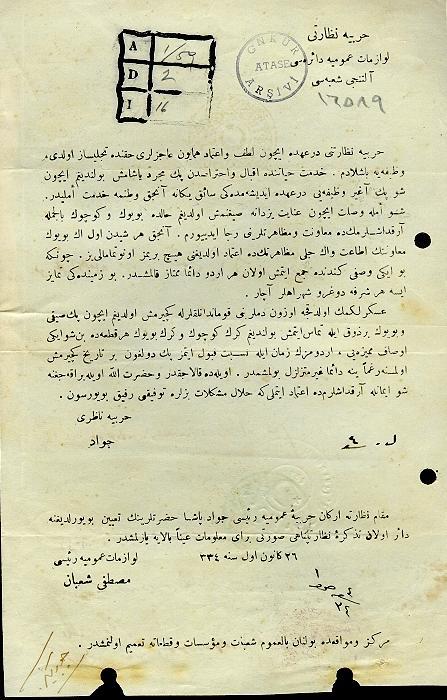 حربیه نظارتی
لوازمات عمومیه دائره‌سی
آلتنجی شعبه‌سی
١٦٥٨٩
A 1/59
D 2
I 16
GNKUR
ATASE
ARŞİVİ
حربیه نظارتنی درعهده ایچون لطف واعتماد همایون عاجزلری حقنده تجلیساز اولدی،
وظیفه‌یه باشلادم . خدمت حیاتنده اقبال واحتراصدن پك مجرد یاشامش بولندیغم ایچون
شو پك آغیر وظیفه‌یی درعهده ایدیشمده‌كی سائق یكانه آنجق وطنمه خدمت املیدر.
شو امله وصلت ایچون عنایت یزدانه صیغنمش اولدیغم حالده بویوك وكوچوك بالجمله
آرقداشلرمك‌ده معاونت ومظاهرتلرینی رجا ایدییورم . آنجق هر شیدن اول اك بویوك
معاونتك اطاعت واك جلی مظاهرتك‌ده اعتماد اولدیغنی هیچ بریمز اونوتمامالی‌یز. چونكه
بو ایكی وصفی كندنده جمع ایتمش اولان هر اردو دائما ممتاز قالمشدر. بو زمینده‌كی تمایز
ایسه هر شرفه دوغرو شهراهلر آچار .
عسكرلكمك اولدقجه اوزون دملرینی قوماندانلقلرله كچیرمش اولدیغم ایچون پك صیقی
وبویوك برذوق ایله تماس ایتمش بولندیغم كرك كوچوك وكرك بویوك هرقطعه‌ده بن‌شوایكی
اوصاف ممیزه‌یی ، اردومزك زمان ایله نسبت قبول ایتمز پك دولغون بر تاریخ كچیرمش
اولمسنه رغماً ینه دائما غیرمتزلزل بولمشمدر . اویله‌ده قالاجقدر وحضرت الله اویله‌براقه‌جغنه
شو ایمانله آرقداشلرم‌ده اعتماد ایتملی‌كه حلال مشكلات بزلره توفیقنی رفیق بویورسون .
حربیه ناظری
جواد
مقام نظارته اركان حربیهٔ عمومیه رئیسی جواد پاشا حضرتلرینك تعیین بویورلدیغنه
دائر اولان تذكرهٔ نظارتپناهی صورتی برای معلومات عیناً بالایه یازلمشدر.
٢٦ كانون اول سنه ٣٣٤
لوازمات عمومیه رئیسی
مصطفی شعبان
مركز ومواقعده بولنان بالعموم شعبات ومؤسسات وقطعاته تعمیم اولنمشدر .